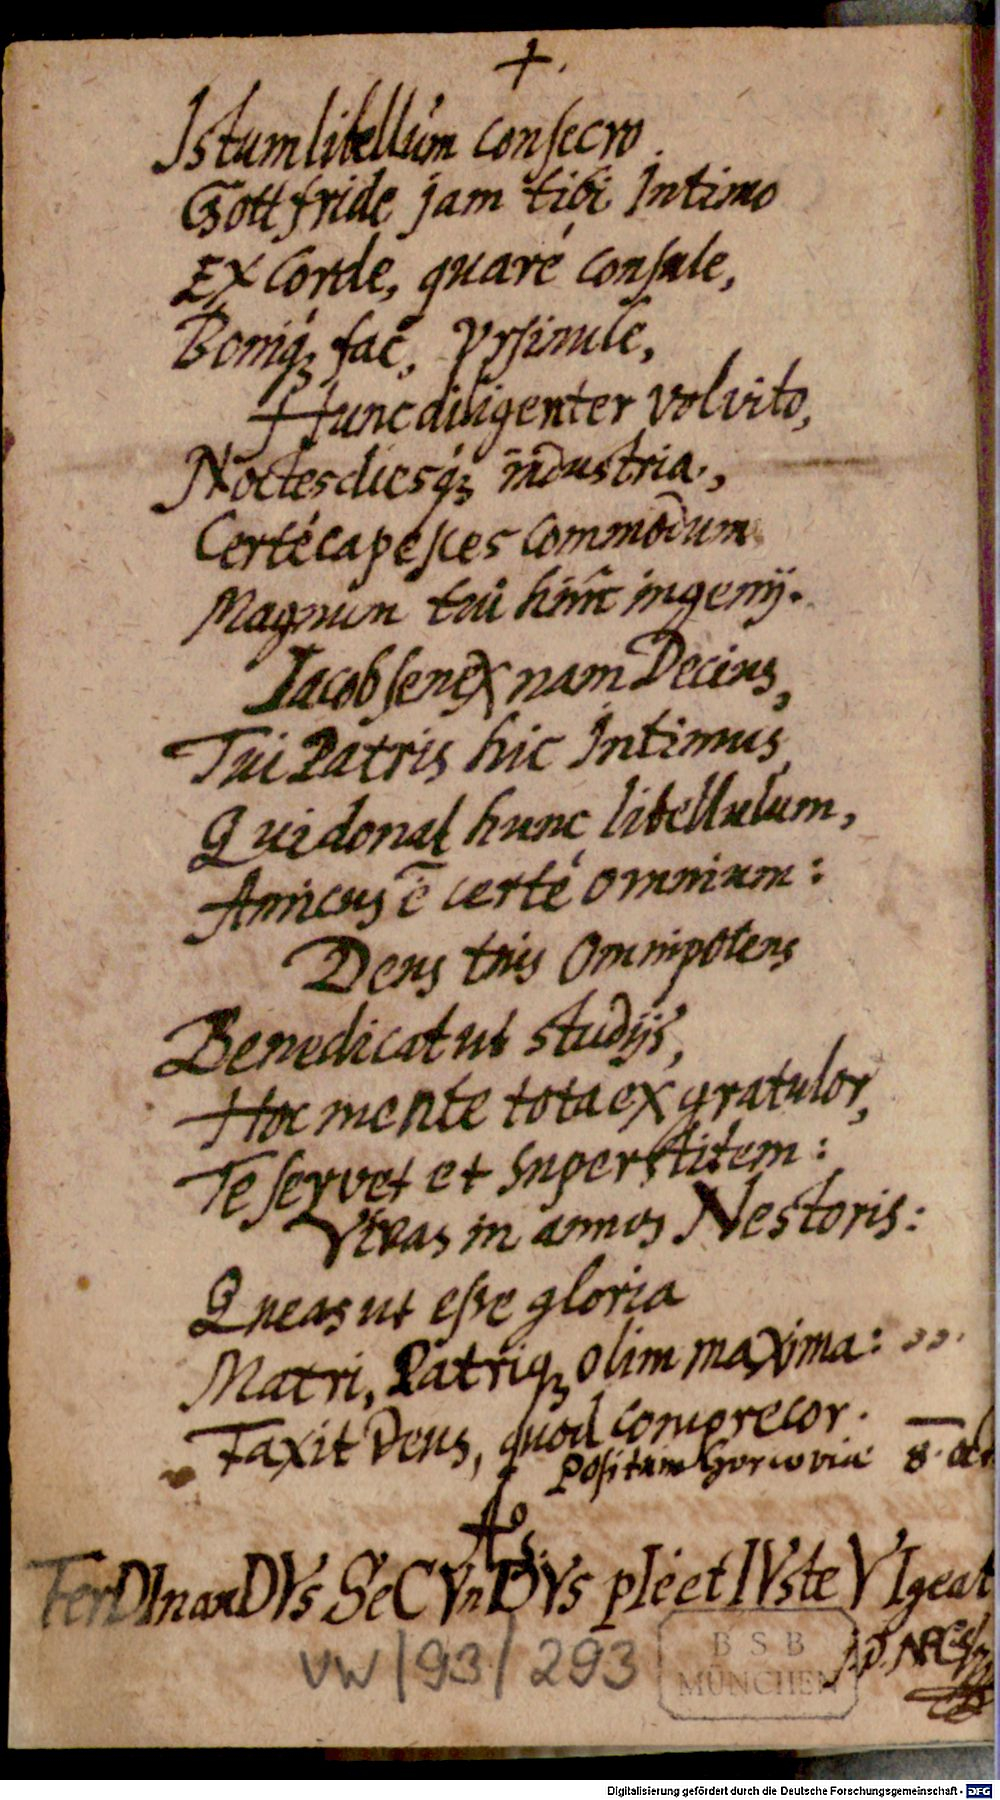 +.
Istum libellum consecro.
Gottfride jam tibi Intimo
Ex Corde, quarè consule,
Boniq₃ fac, Vrsinule,
Hunc diligenter volvito,
Noctes diesq́₃ industria,
Certè capesces commodum
Magnum tui hinc ingenij.
Iacob senex nam Decius,
Tui Patris hic Intimus,
Qui donat hunc libellulum,
Amicus ē certè omnium:
Deus tuis Omnipotens
Benedicat ut studijs,
Hoc mente tota ex gratulor,
Te servet et superstitem:
Vivas in annos Nestoris:
Queas ut esse gloria
Matri, Patriq₃ olim maxima:
Faxit Deus, quod comprecor.
Positum Gorcoviae 8.
Aō
FerDInanDVs SeCVnDVs pIè et IVste VIgeat
VW/93/293
BSB
MÜNCHEN
Digitalisierung gefördert durch die Deutsche Forschungsgemeinschaft - DFG